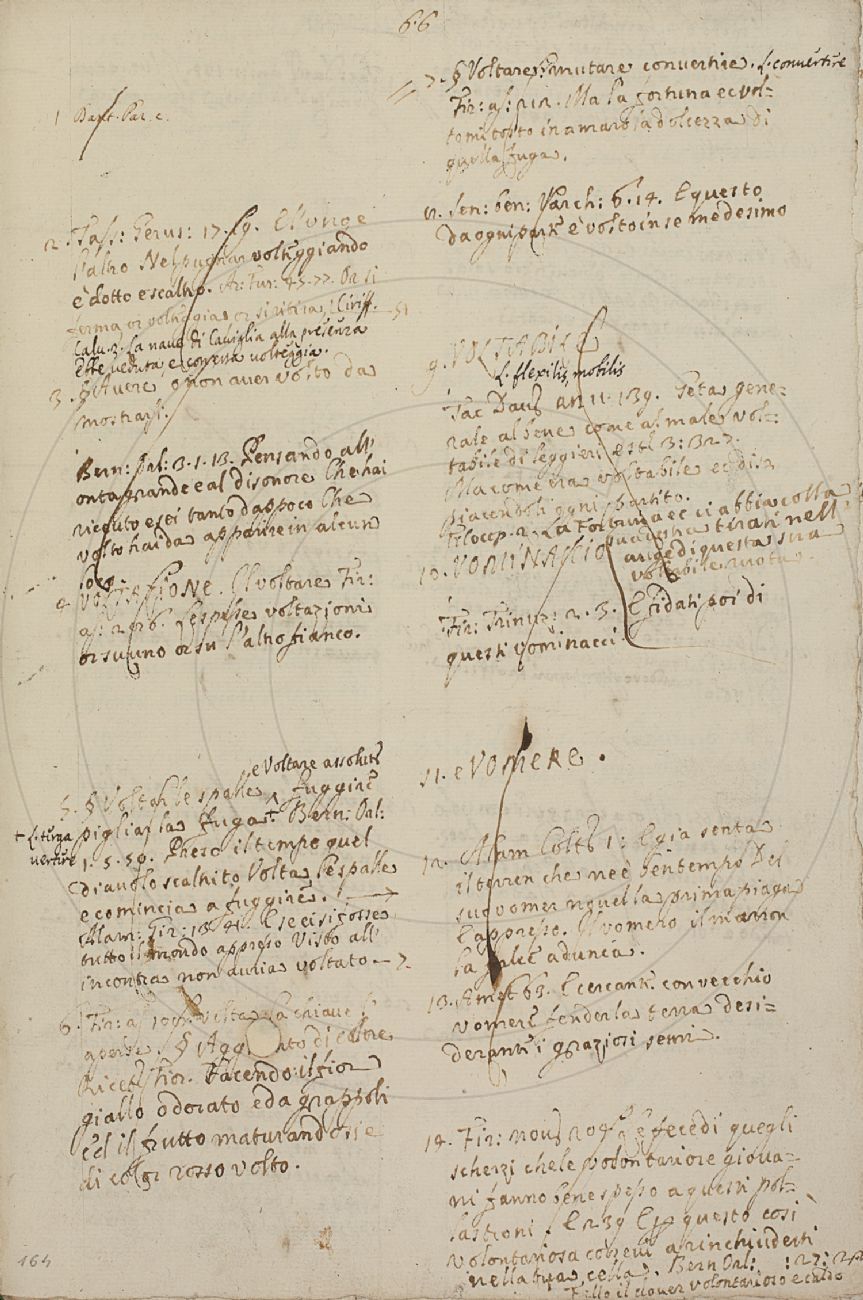 66
1 Dant. Par. c.
2. Tass: Gerus: 17. E giunge
l'altro Nel pugnar volteggiando
è dotto e scaltro. Ar: Fur: 45. 77. Or si
ferma, or volteggia, or si ritira, Ciriff.
Calv. 2. la nave di Caviglia alla presenza
volteggia.
3. § Avere o non aver volto da
mostrarsi.
Bern: Orl: 3. 1. 13. Pensando all'
onta grande e al disonore Che hai
ricevuto e sei tanto dappoco Che
volto hai da apparire in alcun
loco.
4. VOLTAZIONE. Il voltare Fir:
as: 226. Le spesse voltazioni
or su uno or su l'altro fianco.
e Voltare assolute
5. § Voltar le spalle, fuggire
pigliar la fuga. Bern: Orl:
+ L. terga
vertere
1. 5. 59. Preso il tempo quel
Diavolo scaltrito Volta le spalle
e comincia a fuggire.
Alam: Gir: 13. E se ci si fosse
tutto il mondo appreso Visto all'
incontra non avria voltato
6. Fir: as: volta la chiave
aperse. § Agg to di colore
Ricett: Fior. Facendo il fior
giallo odorato e da grappoli
ed il frutto maturandosi
di color rosso volto.
7. § Voltare: mutare convertire. L. convertire
Fir: as: 212. Ma la fortuna ec vol=
tomi tosto in amaro la dolcezza di
quella fuga.
8. Sen: ben: Varch: 6. 14. E questo
da ogni parte è volto in se medesimo
9. VOLTABILE
L. flexilis, mobilis
Tac Dav: an 11. 139. Seta gene=
rale al bene come al male vol=
tabile di leggieri. e st: 3: 327.
Ma come era voltabile ec dis=
piacendoli ogni partito.
Filoc. 2. La Fortuna ec ci abbia colla
tirati nell'
auge di questa sua
volubile ruota.
10. VOMINACCIO
Fir: Trinuz: 2. 3. E fidati poi di
questi vominacci
11. e VOMERE.
12. Alam Colt: 1: E già senta
il terren che ne è ben tempo Del
suo vomer novella prima piaga
E appresso. Il vomero il marron
la falce adunca.
13. Amet 63. E cercante con vecchio
vomere fender la terra desi=
derante i graziosi semi.
14. Fir: nov: 204 e fece di quegli
scherzi che le volontariose giova=
ni fanno bene spesso a questi pol=
lastroni. E 239 E per questo così
volontariosa corsevi a rinchiuderti
nella tua cella. Bern Orl: : 27: 24
Fallo il dover volontarioso e caldo
164